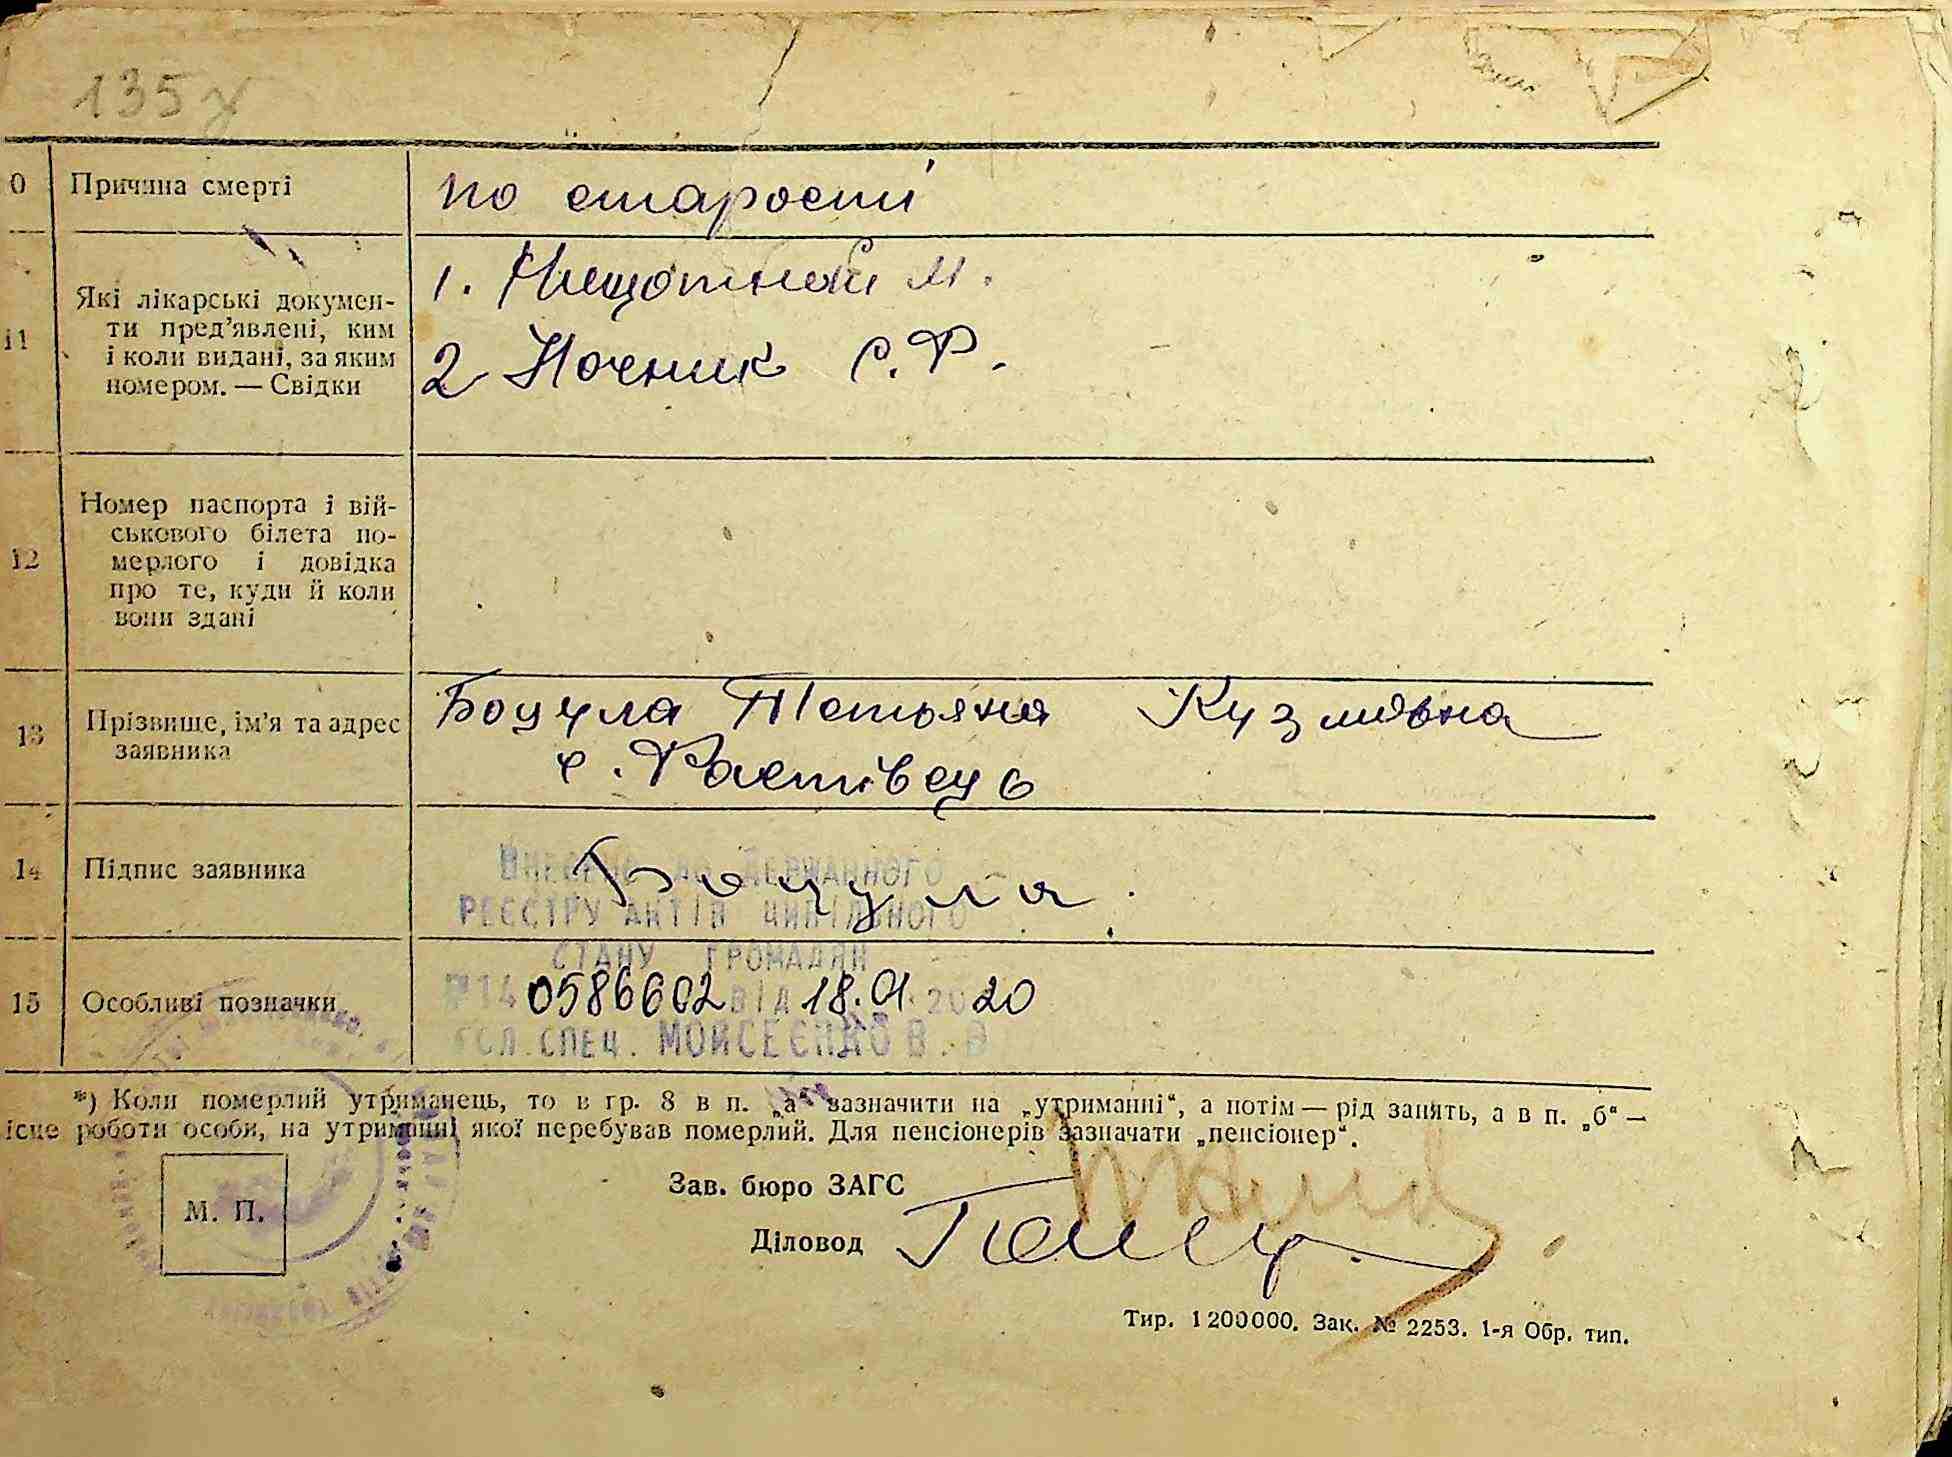 135
0 Причина смерті по старості
11 Які лікарські докумен-
ти пред’явлені, ким
і коли видані, за яким
номером. — Свідки
1. М.
2 Ночник С.Ф.
12 Номер паспорта і вій-
ськового білета по-
мерлого і довідка
про те, куди й коли
вони здані
13 Прізвище, ім’я та адрес
заявника
Боцула Татьяна Кузмівна
с. Фастівець
14 Підпис заявника Боцула
ВНЕСЕНО ДО ДЕРЖАВНОГО
РЕЄСТРУ АКТІВ ЦИВІЛЬНОГО
СТАНУ ГРОМАДЯН
15 Особливі позначки №14 0586602 від 18.01.2020
ГОЛ. СПЕЦ. МОЙСЕЄНКО В. О
*) Коли померлий утриманець, то в гр. 8 в п. „а“ зазначити на „утриманні“, а потім — рід занять, а в п. „б“ —
ісце роботи особи, на утриманні якої перебував померлий. Для пенсіонерів зазначати „пенсіонер“.
М. П.
Зав. бюро ЗАГС
Діловод
Тир. 1200000. Зак. № 2253. 1-я Обр. тип.